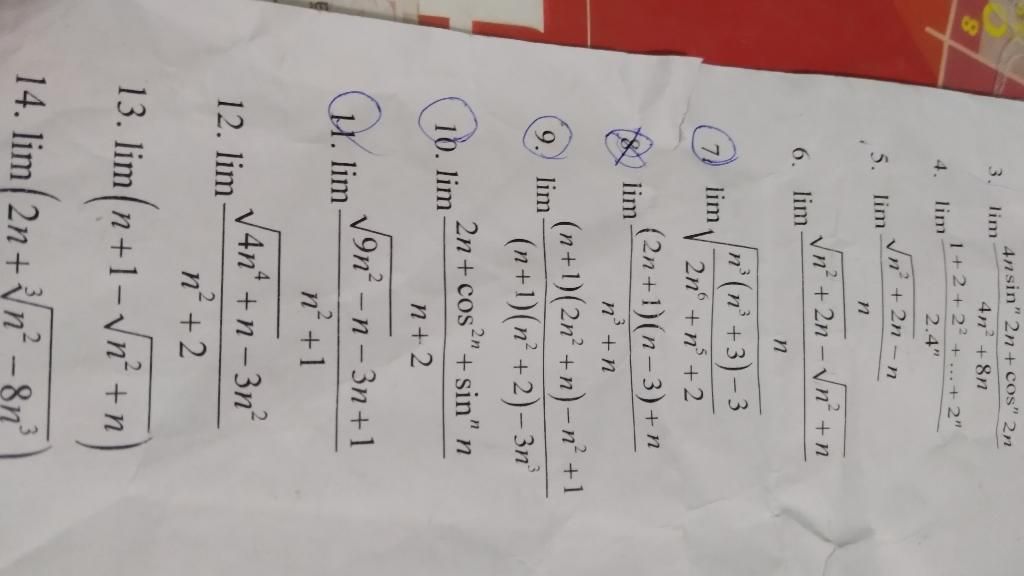 3. lim (4n sin^n 2n + cos^n 2n)/(4n^2 + 8n)
4. lim (1 + 2 + 2^2 + ... + 2^n)/(2.4^n)
5. lim (√(n^2 + 2n) - n)/n
6. lim (√(n^2 + 2n) - √(n^2 + n))/n
7. lim √((n^3(n^3 + 3) - 3)/(2n^6 + n^5 + 2))
8. lim ((2n + 1)(n - 3) + n)/(n^3 + n)
9. lim ((n + 1)(2n^2 + n) - n^2 + 1)/((n + 1)(n^2 + 2) - 3n^3)
10. lim (2n + cos^{2n} + sin^n n)/(n + 2)
11. lim (√(9n^2 - n) - 3n + 1)/(n^2 + 1)
12. lim (√(4n^4 + n) - 3n^2)/(n^2 + 2)
13. lim(n + 1 - √(n^2 + n))
14. lim(2n + ∛(n^2 - 8n^3))